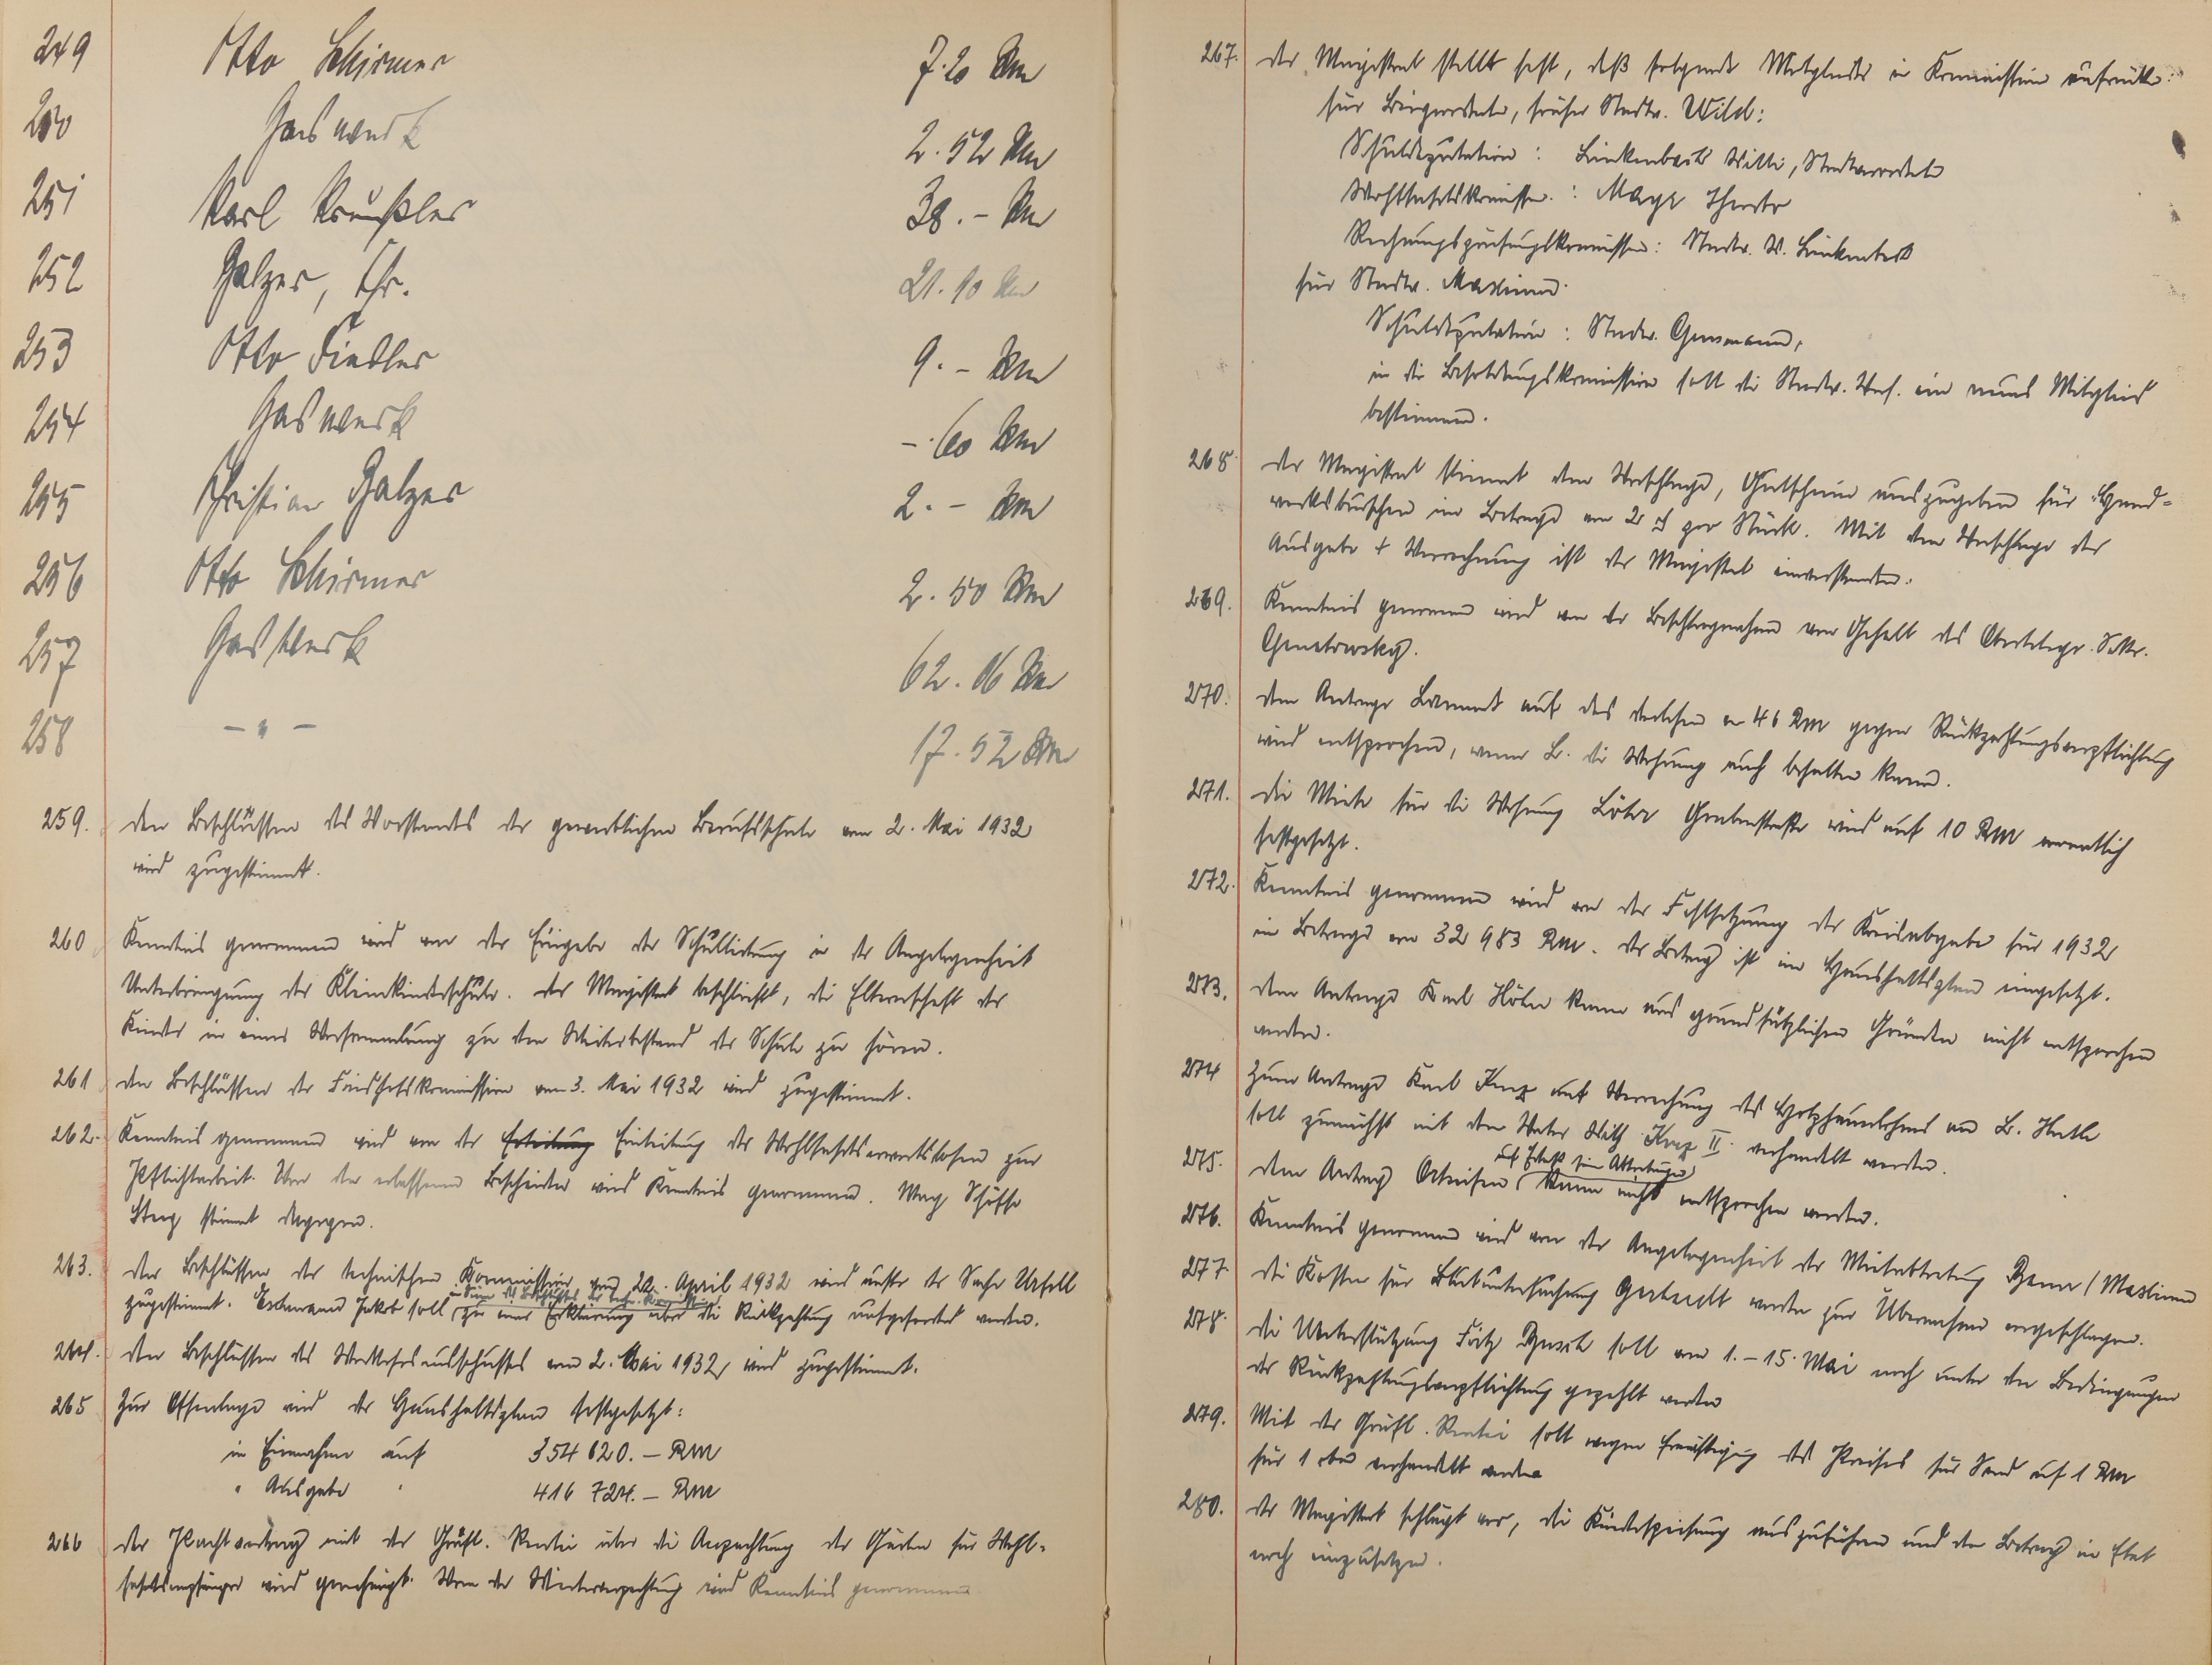 249 Otto Schirmer 7.20 Rm
250 Gaswerk 2.52 Rm
251 Karl Kreußler 38.- Rm
252 Balzer, Chr. 21.10 Rm
253 Otto Fiedler 9.- Rm
254 Gaswerk -.60 Rm
255 Christian Balzer 2.- Rm
256 Otto Schirmer 2.50 Rm
257 Gaswerk 62.06 Rm
258 - " - 17.52 Rm
259. Den Beschlüssen des Vorstandes der gewerblichen Berufsschule vom 2. Mai 1932
wird zugestimmt.
260 Kenntnis genommen wird von der Eingabe der Schulleitung in der Angelegenheit
Unterbringung der Kleinkinderschule. Der Magistrat beschließt, die Elternschaft der
Kinder in einer Versammlung zu dem Weiterbestand der Schule zu hören.
261 Den Beschlüssen der Friedhofskommission vom 3. Mai 1932 wird zugestimmt.
262. Kenntnis genommen wird von der Einteilung der Wohlfahrtserwerbslosen zur
Pflichtarbeit. Von den erlassenen Bescheiden wird Kenntnis genommen. Schöffe
stimmt dagegen.
263. Den Beschlüssen der technischen Kommission vom 22. April 1932 wird außer der Sache
zugestimmt. Jakob soll zu einer Erklärung über die Rückzahlung aufgefordert werden.
264. Den Beschlüssen des Verkehrsausschusses vom 2. Mai 1932 wird zugestimmt.
265 Zur Offenlage wird der Haushaltsplan festgesetzt:
in Einnahme auf 354 620.- RM
" Ausgabe " 416 724.- RM
266 Der Pachtvertrag mit der Gräfl. Rentei über die Anpachtung der Gärten für Wohl-
fahrtsempfänger wird genehmigt. Von der Weiterverpachtung wird Kenntnis genommen
267. Der Magistrat stellt fest, daß folgende Mitglieder in Kommission aufrücken
für Beigeordneten, früher Stadtv. Wild:
Schuldeputation: Willi, Stadtverordneter
Wohlfahrtskommission: Mayr Theodor
Rechnungsprüfungskommission: Stadtv. W.
für Stadtv. Maximin
Schuldeputation: Stadtv.
in die Besoldungskommission soll die Stadtv. Vers. ein neues Mitglied
bestimmen.
268 Der Magistrat stimmt dem Vorschlage, Gutscheine auszugeben für Hand-
werksburschen im Betrage von 2 ₰ pro Stück. Mit dem Vorschlage der
Ausgabe + Verrechnung ist der Magistrat einverstanden.
269. Kenntnis genommen wird von der Beschlagnahme vom Gehalt des Obertelegr. Sekr.
270. Dem Antrage auf das Darlehen von 46 RM gegen Rückzahlungsverpflichtung
wird entsprochen, wenn B. die Wohnung auch behalten kann.
271. Die Miete für die Wohnung Grabenstraße wird auf 10 RM monatlich
festgesetzt.
272. Kenntnis genommen wird von der Festsetzung der Kreisabgabe für 1932
im Betrage von 32 983 RM. Der Betrag ist im Haushaltsplan eingesetzt.
273. Dem Antrage Karl kann aus grundsätzlichen Gründen nicht entsprochen
werden.
274 Zum Antrage Karl Knap auf Verrechnung des Holzhauerlohnes
soll zunächst mit dem Vater Knap II verhandelt werden.
275. Dem Antrag auf Erlaß kann nicht entsprochen werden.
276. Kenntnis genommen wird von der Angelegenheit der Mietabtretung / Maximin
277. Die Kosten für Blutuntersuchung werden zur Übernahme vorgeschlagen.
278. Die Unterstützung Fritz soll vom 1.-15. Mai noch unter den Bedingungen
der Rückzahlungsverpflichtung gezahlt werden
279. Mit der Gräfl. Rentei soll wegen Ermäßigung des Preises für Sand auf 1 RM
für 1 cbm verhandelt werden
280. Der Magistrat schlägt vor, die Kinderspeisung auszuführen und den Betrag im Etat
noch einzusetzen.